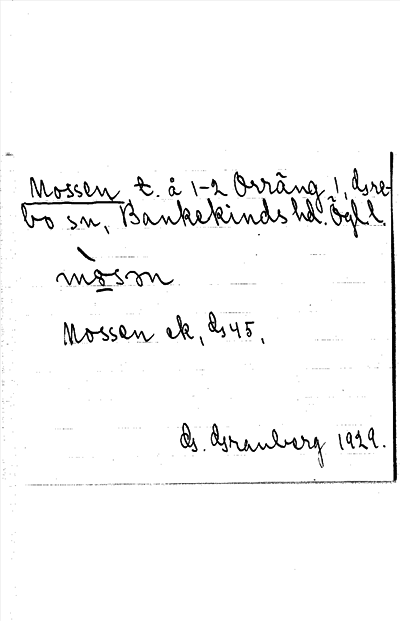 Mossen t. å 1-2 Orräng 1, Gre-
bo sn, Bankekinds hd. Ögl l.
mòsən
Mossen ek, G45,
G. Granberg 1929.